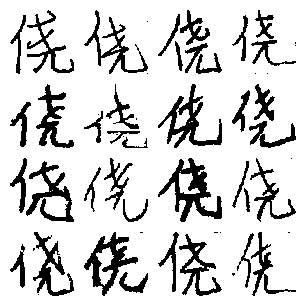 侥侥侥侥
侥侥侥侥
侥侥侥侥
侥侥侥侥